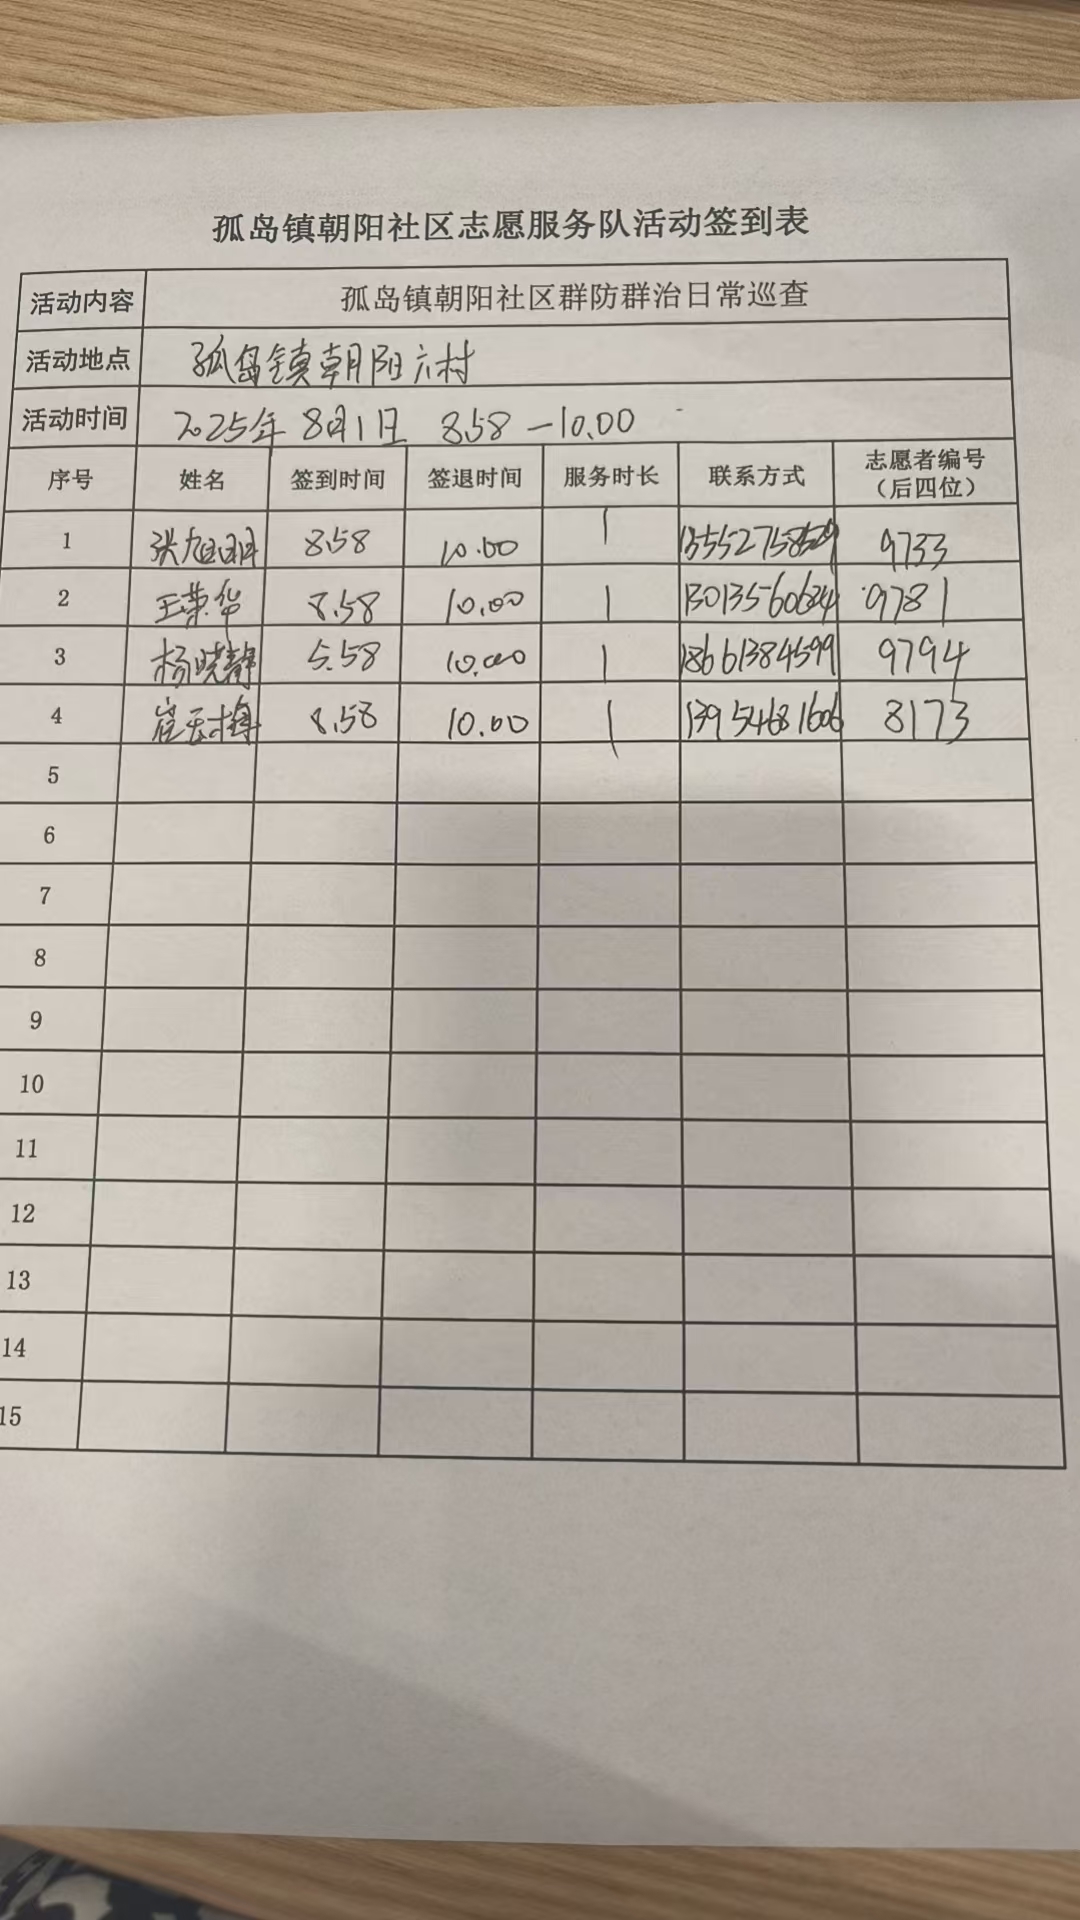 孤岛镇朝阳社区志愿服务队活动签到表
活动内容 孤岛镇朝阳社区群防群治日常巡查
活动地点 孤岛镇朝阳六村
活动时间 2025年8月1日 8.58-10.00
序号 姓名 签到时间 签退时间 服务时长 联系方式 志愿者编号（后四位）
1 张旭明 8.58 10.00 1 9733
2 王荣华 8.58 10.00 1 13013560624 9781
3 杨晓静 5.58 10.00 1 18661384599 9794
4 崔玉梅 8.58 10.00 1 13954681606 8173
5
6
7
8
9
10
11
12
13
14
15